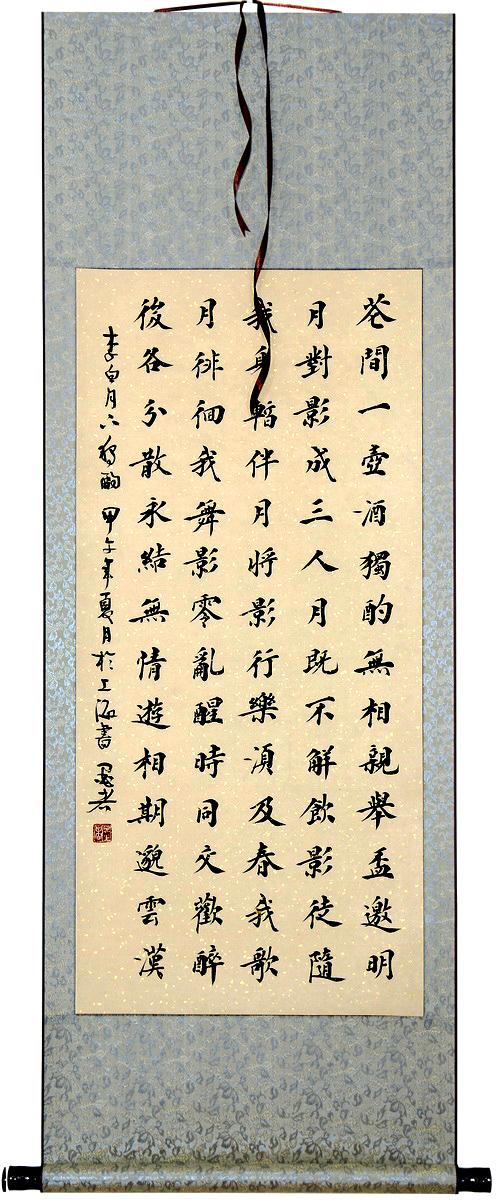 花間一壺酒獨酌無相親舉盃邀明
月對影成三人月既不解飲影徒隨
我身暫伴月將影行樂須及春我歌
月徘徊我舞影零亂醒時同交歡醉
後各分散永結無情遊相期邈雲漢
李白月下獨酌 甲午年夏月於上海書